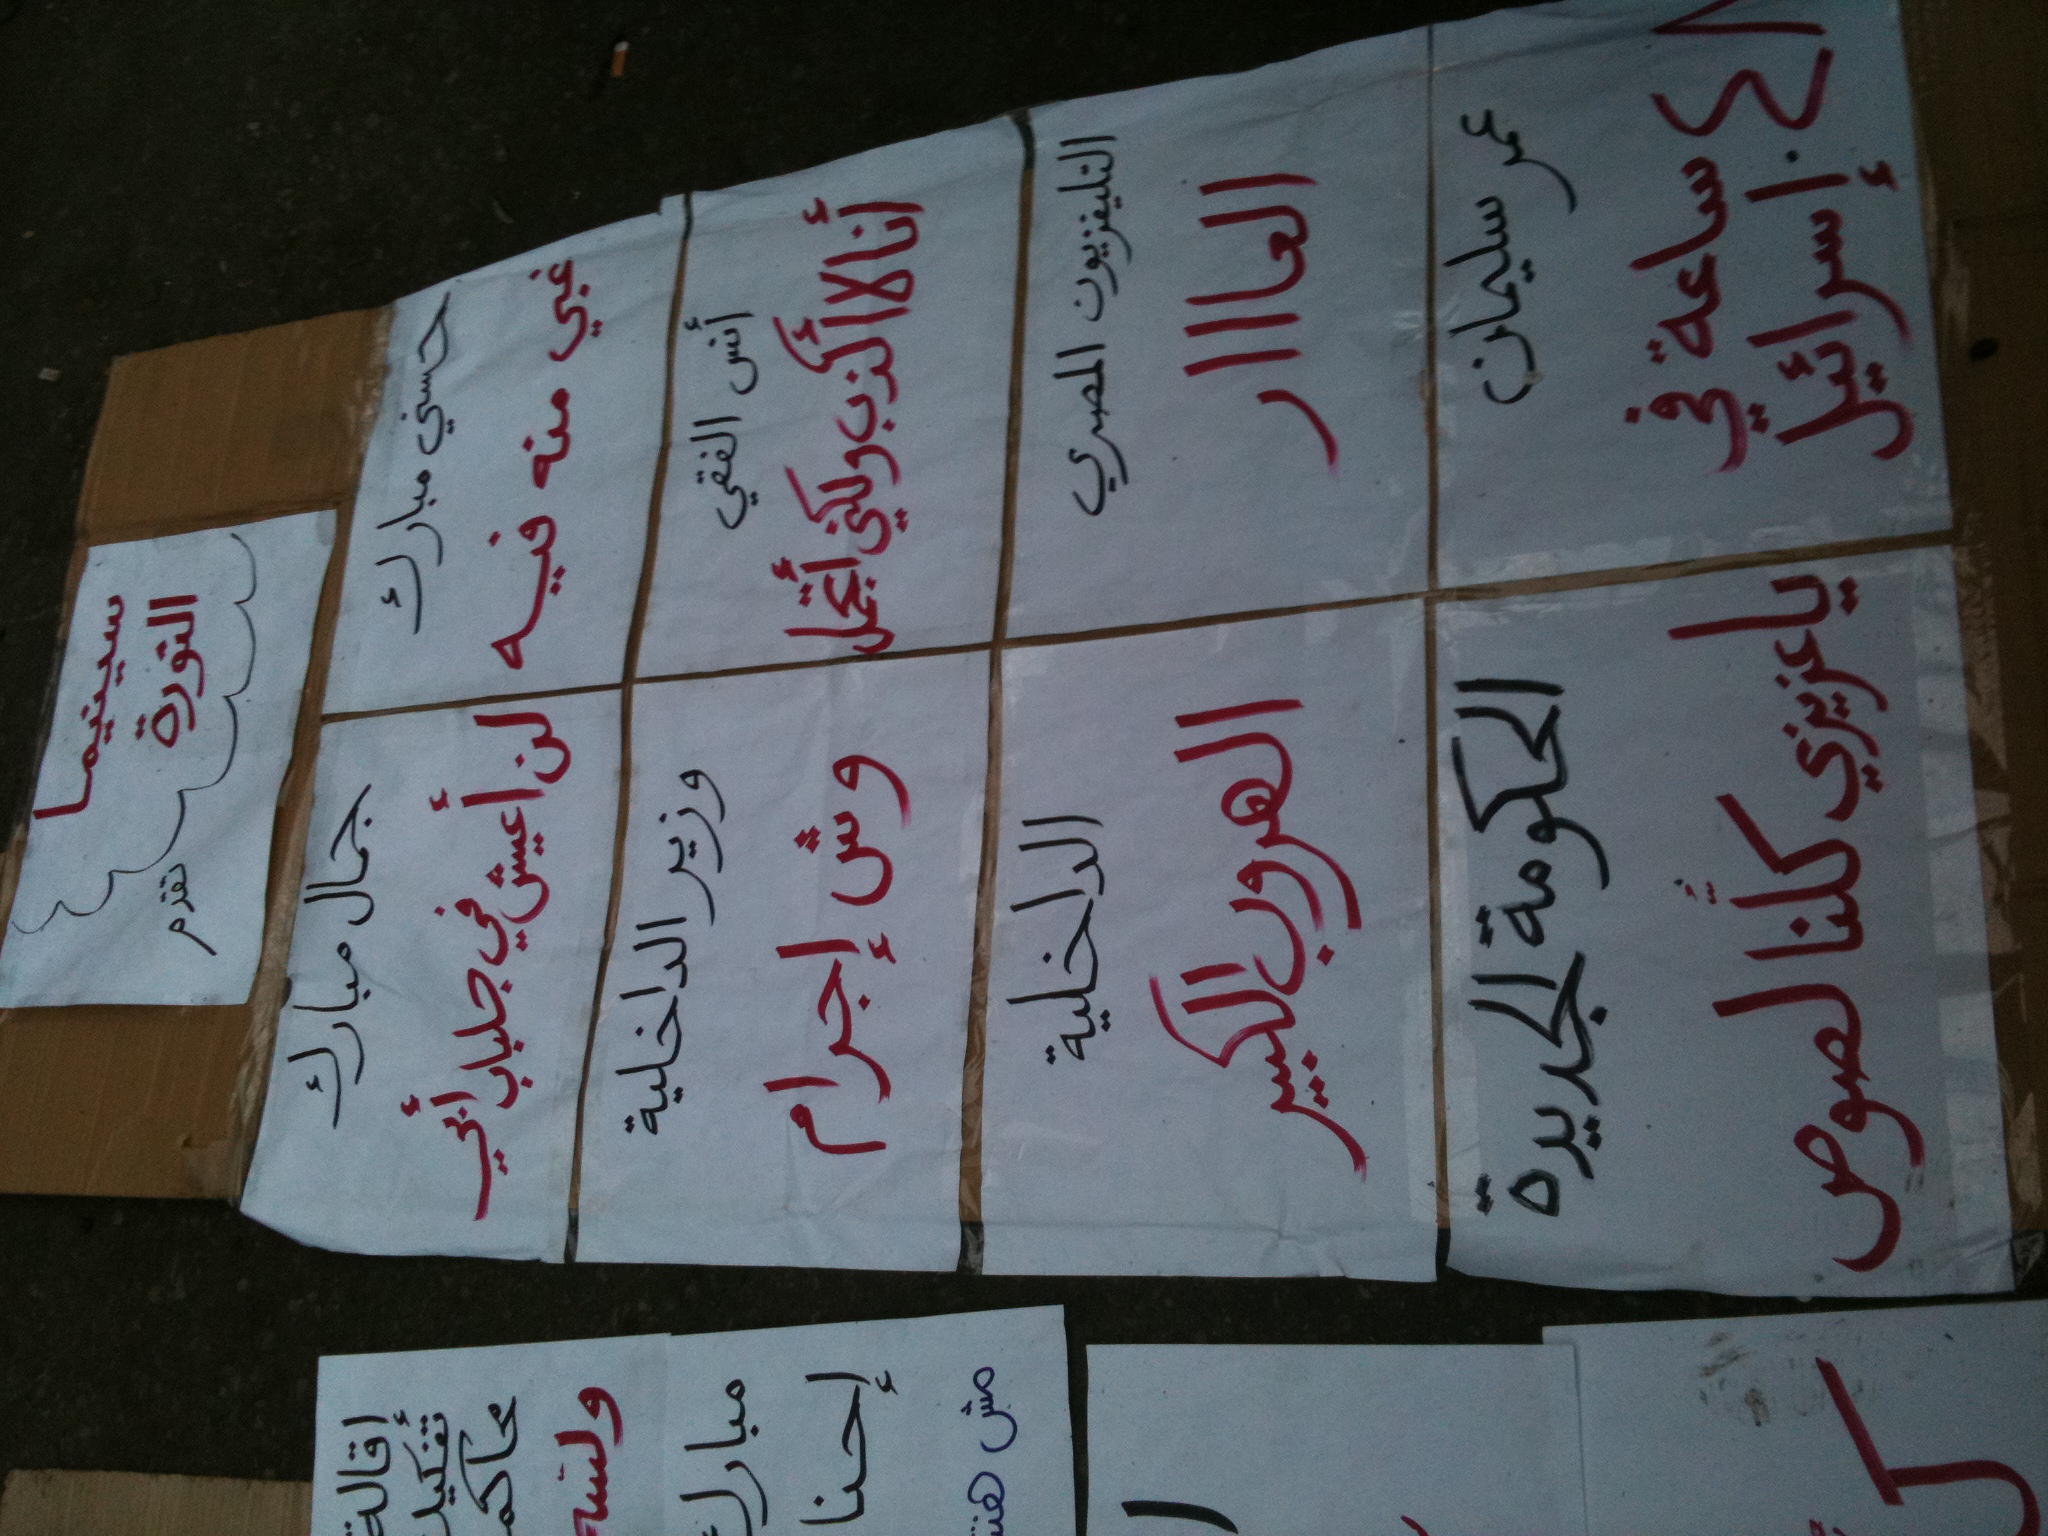 سينيما
الثورة
تقدم
حسني مبارك
غبي منه فيه
جمال مبارك
لن أعيش في جلباب أبي
أنس الفقي
أنا لا أكذب ولكني أتجمل
وزير الداخلية
وش إجرام
التليفزيون المصري
العاااار
الداخلية
الهروب الكبير
عمر سليمان
٤٨ ساعة في
إسرائيل
الحكومة الجديدة
يا عزيزي كلنا لصوص
اقالة
ولسه
مبارك
إحنا
مش